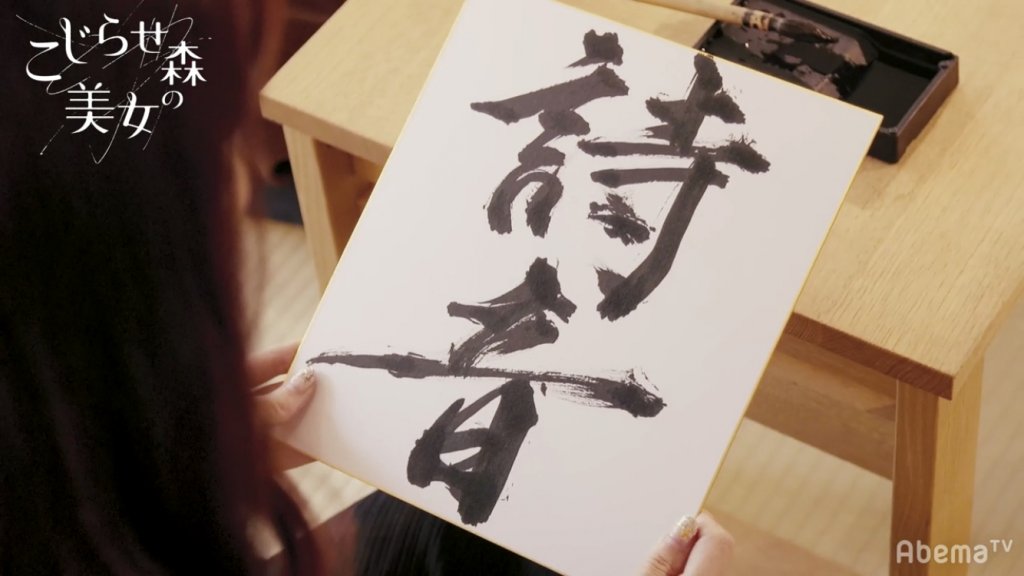 こじらせ森の
美女
詩音
AbemaTV